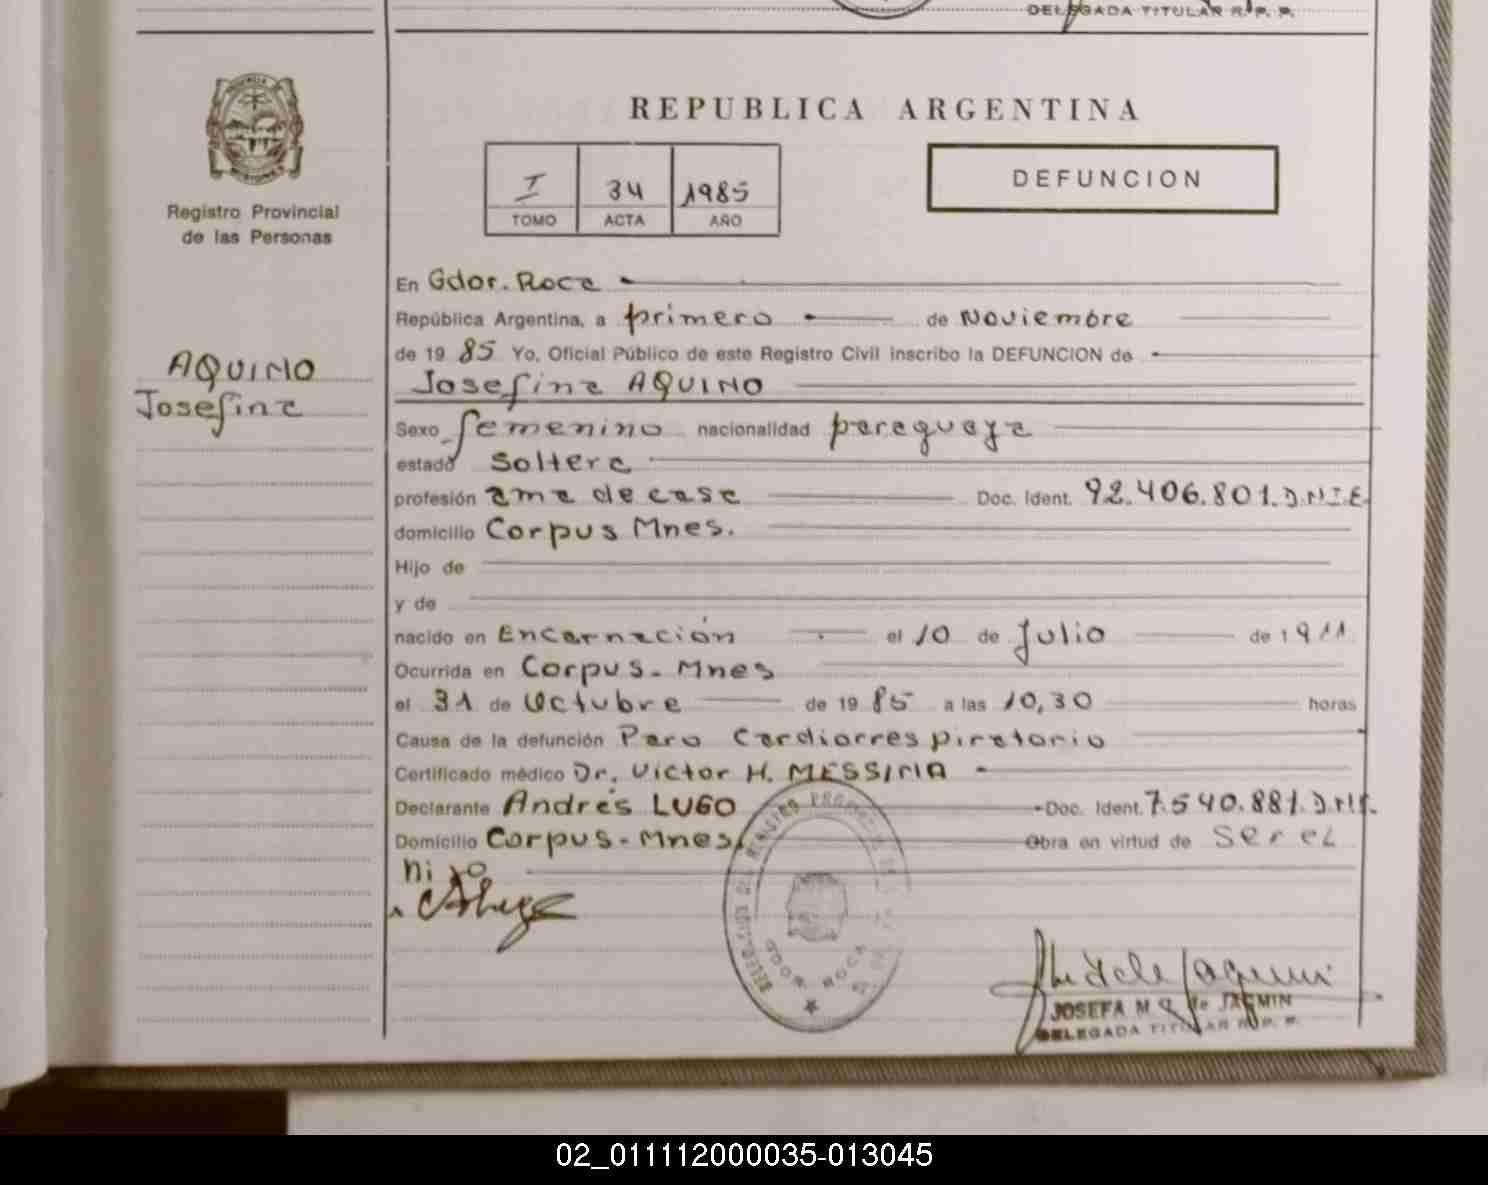 DELEGADA TITULAR R. P. P.
Registro Provincial
de las Personas
AQUINO
Josefina
REPUBLICA ARGENTINA
I 34 1985
TOMO ACTA AÑO
DEFUNCION
En Gdor. Roca
República Argentina, a primero de Noviembre
de 19 85 Yo, Oficial Público de este Registro Civil inscribo la DEFUNCION de
Josefina AQUINO
Sexo femenino nacionalidad paraguaya
estado soltera
profesión ama de casa Doc. Ident. 92.406.801.D.N.I.E.
domicilio Corpus Mnes.
Hijo de
y de
nacido en Encarnación el 10 de Julio de 1911
Ocurrida en Corpus - Mnes
el 31 de Octubre de 19 85 a las 10,30 horas
Causa de la defunción Paro Cardiorrespiratorio
Certificado médico Dr. Victor H. MESSINA
Declarante Andrés LUGO Doc. Ident. 7.540.881. D.N.I.
Domicilio Corpus - Mnes. Obra en virtud de ser el
GDOR ROCA
JOSEFA M. de JACMIN
DELEGADA TITULAR R. P. P.
02_011112000035-013045